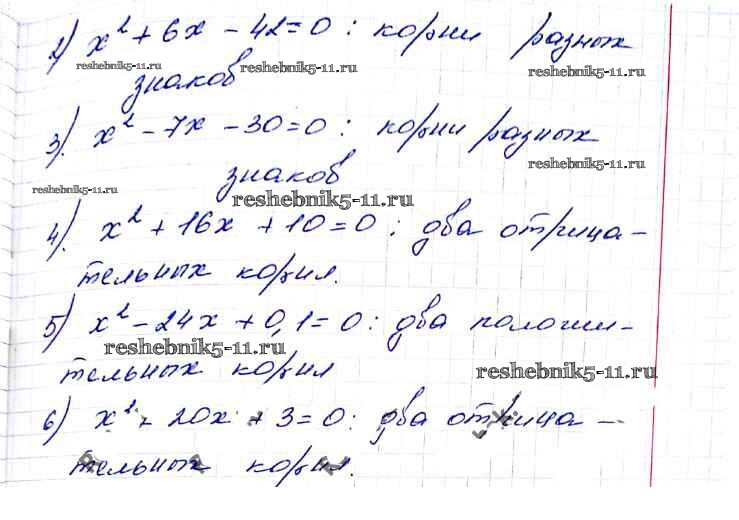 2) x² + 6x - 42 = 0 : корни разных
reshebnik5-11.ru reshebnik5-11.ru reshebnik5-11.ru
знаков
3). x² - 7x - 30 = 0 : корни разных
reshebnik5-11.ru
знаков
reshebnik5-11.ru
reshebnik5-11.ru
4). x² + 16x + 10 = 0 : два отрица-
тельных корня.
5) x² - 24x + 0,1 = 0 : два положи-
reshebnik5-11.ru
тельных корня
reshebnik5-11.ru
6) x² - 20x + 3 = 0 : два отрица-
тельных корня.